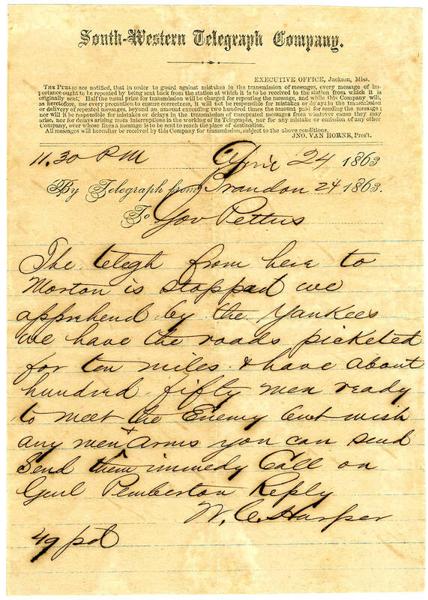 South-Western Telegraph Company.
EXECUTIVE OFFICE, Jackson, Miss.
THE PUBLIC are notified, that in order to guard against mistakes in the transmission of messages, every message of im-
portance ought to be repeated by being sent back from the station at which it is to be received to the station from which it is
originally sent. Half the usual price for transmission will be charged for repeating the message, and while this Company will,
as heretofore, use every precaution to ensure correctness, it will not be responsible for mistakes or delays in the transmission
or delivery of repeated messages, beyond an amount exceeding two hundred times the amount paid for sending the message;
nor will it be responsible for mistakes or delays in the transmission of unrepeated messages from whatever cause they may
arise, nor for delays arising from interruptions in the working of its Telegraphs, nor for any mistake or omission of any other
Company, over whose lines a message is to be sent to reach the place of destination.
All messages will hereafter be received by this Company for transmission, subject to the above conditions.
JNO. VAN HORNE, Pres't.
11.30 PM April 24 1863
By Telegraph from Brandon 24 1863.
To Gov Pettus
The telegh from here to
Morton is stopped we
apprehend by the Yankees
we have the roads picketed
for ten miles & have about
hundred fifty men ready
to meet the Enemy but wish
any men + arms you can send
Send them immedy Call on
Genl Pemberton Reply
W. C. Harper
49 pd